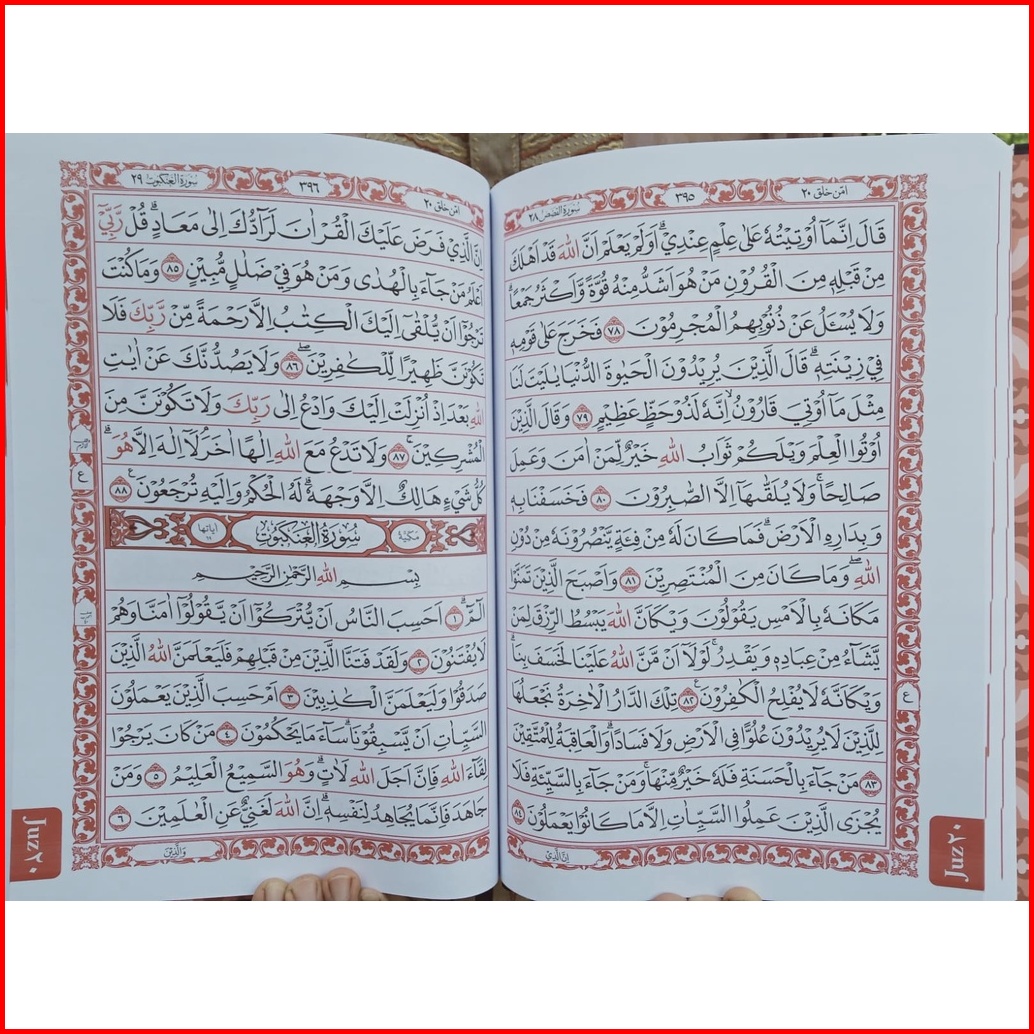 امن خلق ٢٠
٣٩٥
سورة القصص ٢٨
قَالَ اِنَّمَآ اُوْتِيْتُهٗ عَلٰى عِلْمٍ عِنْدِيْۗ اَوَلَمْ يَعْلَمْ اَنَّ اللّٰهَ قَدْ اَهْلَكَ
مِنْ قَبْلِهٖ مِنَ الْقُرُوْنِ مَنْ هُوَ اَشَدُّ مِنْهُ قُوَّةً وَّاَكْثَرُ جَمْعًاۗ
وَلَا يُسْـَٔلُ عَنْ ذُنُوْبِهِمُ الْمُجْرِمُوْنَ ٧٨ فَخَرَجَ عَلٰى قَوْمِهٖ
فِيْ زِيْنَتِهٖۗ قَالَ الَّذِيْنَ يُرِيْدُوْنَ الْحَيٰوةَ الدُّنْيَا يٰلَيْتَ لَنَا
مِثْلَ مَآ اُوْتِيَ قَارُوْنُۙ اِنَّهٗ لَذُوْ حَظٍّ عَظِيْمٍ ٧٩ وَقَالَ الَّذِيْنَ
اُوْتُوا الْعِلْمَ وَيْلَكُمْ ثَوَابُ اللّٰهِ خَيْرٌ لِّمَنْ اٰمَنَ وَعَمِلَ
صَالِحًاۚ وَلَا يُلَقّٰىهَآ اِلَّا الصّٰبِرُوْنَ ٨٠ فَخَسَفْنَا بِهٖ
وَبِدَارِهِ الْاَرْضَۗ فَمَا كَانَ لَهٗ مِنْ فِئَةٍ يَّنْصُرُوْنَهٗ مِنْ دُوْنِ
اللّٰهِ ۖوَمَا كَانَ مِنَ الْمُنْتَصِرِيْنَ ٨١ وَاَصْبَحَ الَّذِيْنَ تَمَنَّوْا
مَكَانَهٗ بِالْاَمْسِ يَقُوْلُوْنَ وَيْكَاَنَّ اللّٰهَ يَبْسُطُ الرِّزْقَ لِمَنْ
يَّشَاۤءُ مِنْ عِبَادِهٖ وَيَقْدِرُۚ لَوْلَآ اَنْ مَّنَّ اللّٰهُ عَلَيْنَا لَخَسَفَ بِنَاۗ
وَيْكَاَنَّهٗ لَا يُفْلِحُ الْكٰفِرُوْنَ ٨٢ تِلْكَ الدَّارُ الْاٰخِرَةُ نَجْعَلُهَا
لِلَّذِيْنَ لَا يُرِيْدُوْنَ عُلُوًّا فِى الْاَرْضِ وَلَا فَسَادًاۗ وَالْعَاقِبَةُ لِلْمُتَّقِيْنَ
٨٣ مَنْ جَاۤءَ بِالْحَسَنَةِ فَلَهٗ خَيْرٌ مِّنْهَاۚ وَمَنْ جَاۤءَ بِالسَّيِّئَةِ فَلَا
يُجْزَى الَّذِيْنَ عَمِلُوا السَّيِّاٰتِ اِلَّا مَا كَانُوْا يَعْمَلُوْنَ ٨٤
اِنَّ الَّذِيْ
ع
Juz ٢٠
امن خلق ٢٠
٣٩٦
سورة العنكبوت ٢٩
اِنَّ الَّذِيْ فَرَضَ عَلَيْكَ الْقُرْاٰنَ لَرَاۤدُّكَ اِلٰى مَعَادٍۗ قُلْ رَّبِّيْٓ
اَعْلَمُ مَنْ جَاۤءَ بِالْهُدٰى وَمَنْ هُوَ فِيْ ضَلٰلٍ مُّبِيْنٍ ٨٥ وَمَا كُنْتَ
تَرْجُوْٓا اَنْ يُّلْقٰٓى اِلَيْكَ الْكِتٰبُ اِلَّا رَحْمَةً مِّنْ رَّبِّكَ فَلَا
تَكُوْنَنَّ ظَهِيْرًا لِّلْكٰفِرِيْنَ ۖ ٨٦ وَلَا يَصُدُّنَّكَ عَنْ اٰيٰتِ
اللّٰهِ بَعْدَ اِذْ اُنْزِلَتْ اِلَيْكَ وَادْعُ اِلٰى رَبِّكَ وَلَا تَكُوْنَنَّ مِنَ
الْمُشْرِكِيْنَۚ ٨٧ وَلَا تَدْعُ مَعَ اللّٰهِ اِلٰهًا اٰخَرَۘ لَآ اِلٰهَ اِلَّا هُوَۗ
كُلُّ شَيْءٍ هَالِكٌ اِلَّا وَجْهَهٗۗ لَهُ الْحُكْمُ وَاِلَيْهِ تُرْجَعُوْنَ ٨٨
مكية سُوْرَةُ الْعَنْكَبُوْتِ اياتها
بِسْمِ اللّٰهِ الرَّحْمٰنِ الرَّحِيْمِ
الۤمّۤۗ ١ اَحَسِبَ النَّاسُ اَنْ يُّتْرَكُوْٓا اَنْ يَّقُوْلُوْٓا اٰمَنَّا وَهُمْ
لَا يُفْتَنُوْنَ ٢ وَلَقَدْ فَتَنَّا الَّذِيْنَ مِنْ قَبْلِهِمْ فَلَيَعْلَمَنَّ اللّٰهُ الَّذِيْنَ
صَدَقُوْا وَلَيَعْلَمَنَّ الْكٰذِبِيْنَ ٣ اَمْ حَسِبَ الَّذِيْنَ يَعْمَلُوْنَ
السَّيِّاٰتِ اَنْ يَّسْبِقُوْنَاۗ سَاۤءَ مَا يَحْكُمُوْنَ ٤ مَنْ كَانَ يَرْجُوْا
لِقَاۤءَ اللّٰهِ فَاِنَّ اَجَلَ اللّٰهِ لَاٰتٍۗ وَهُوَ السَّمِيْعُ الْعَلِيْمُ ٥ وَمَنْ
جَاهَدَ فَاِنَّمَا يُجَاهِدُ لِنَفْسِهٖۗ اِنَّ اللّٰهَ لَغَنِيٌّ عَنِ الْعٰلَمِيْنَ ٦
وَالَّذِيْنَ
ع
Juz ٢٠